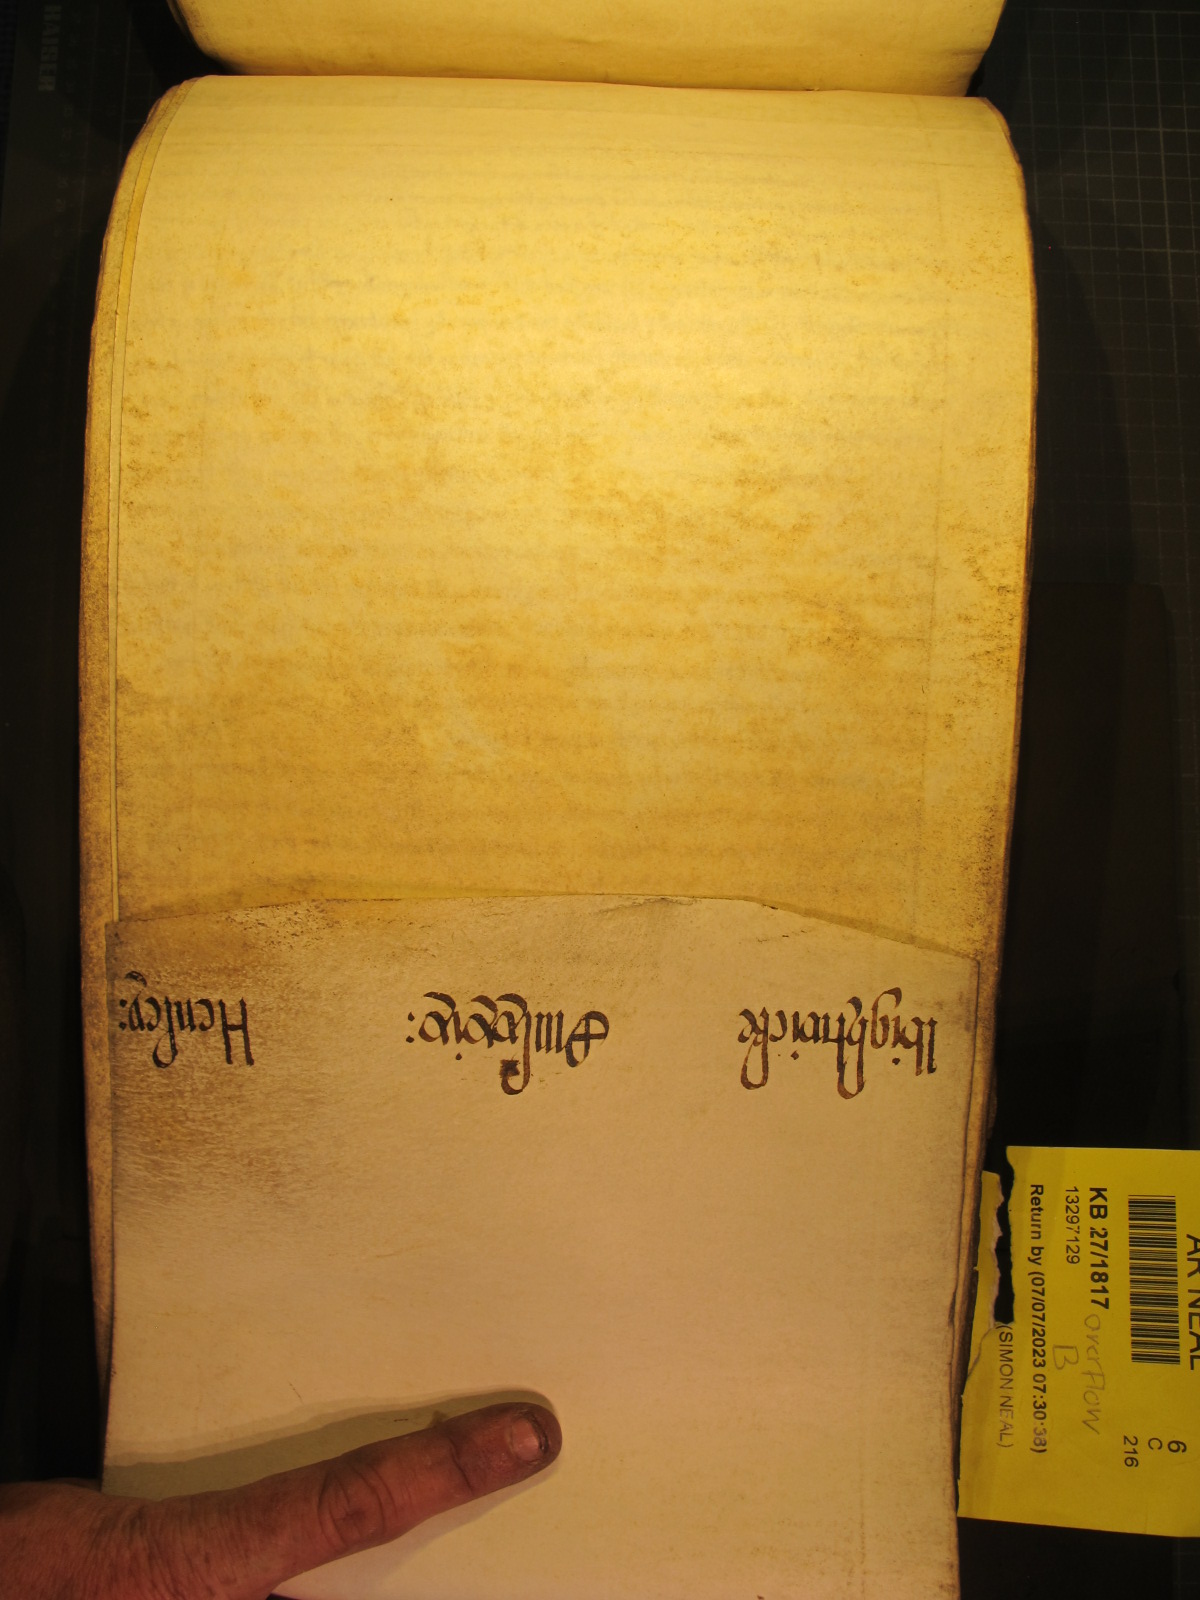 Wightwicke
Henley:
AR NEAL
6
C
216
KB 27/1817 overflow
B
13297129
Return by (07/07/2023 07:30:38)
(SIMON NEAL)
KAISER